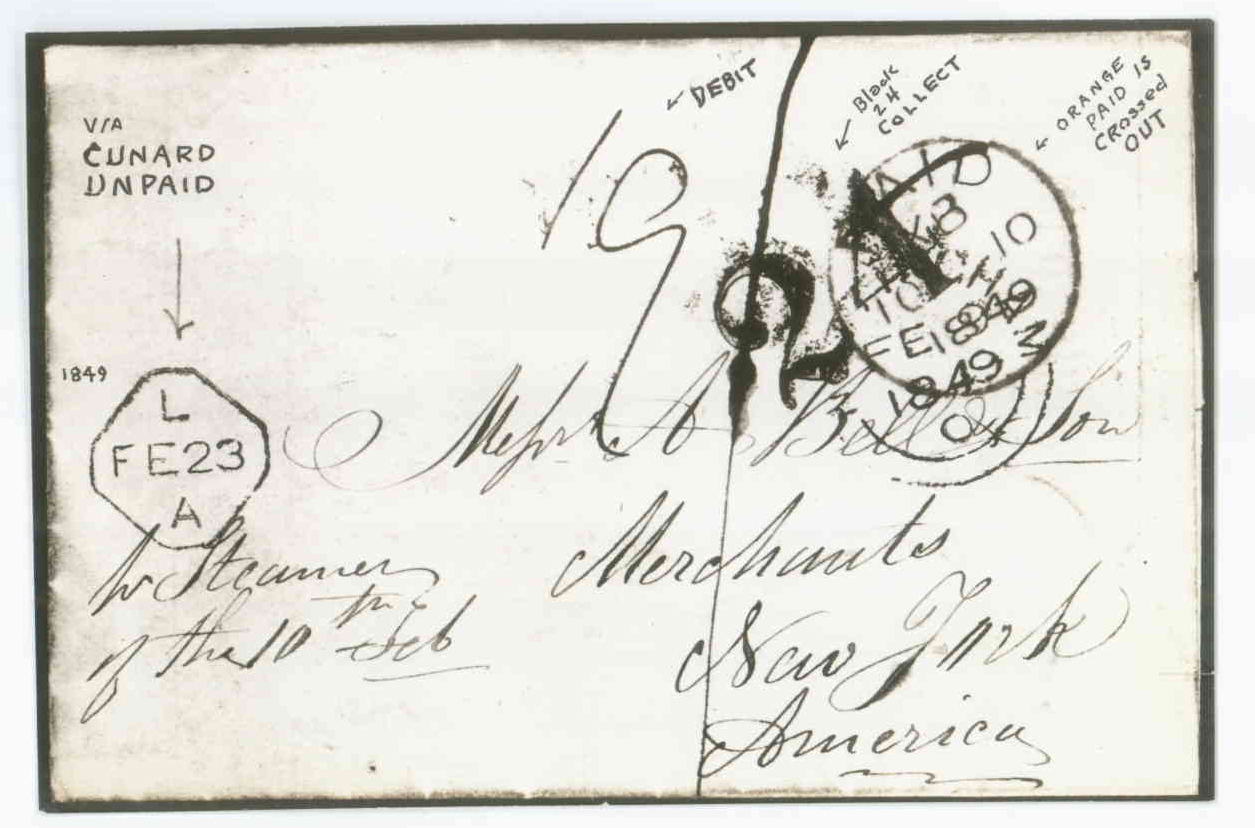 V/A
CUNARD
UNPAID
← DEBIT
Black
24
COLLECT
← ORANGE
PAID IS
CROSSED
OUT
19
24
PAID
10
FE
1849
1849
1849
L
FE23
A
Messrs A. Bell & Son
Merchants
New York
America
pr Steamer
of the 10th Feb